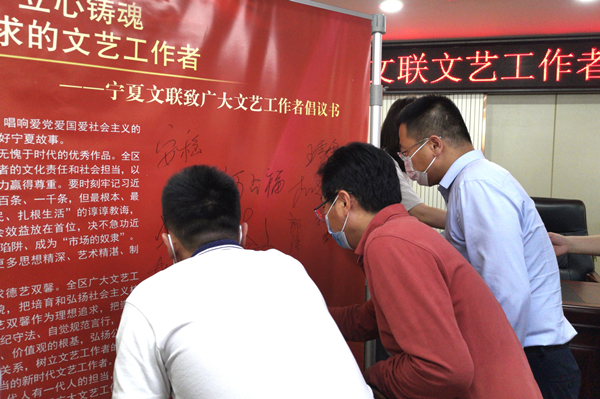 立心铸魂
求的文艺工作者
——宁夏文联致广大文艺工作者倡议书
文联文艺工作者
唱响爱党爱国爱社会主义的
好宁夏故事。
无愧于时代的优秀作品。全区
者的文化责任和社会担当，以
力赢得尊重。要时刻牢记习近
百条、一千条，但最根本、最
民、扎根生活”的谆谆教诲，
会效益放在首位，决不急功近
陷阱、成为“市场的奴隶”。
更多思想精深、艺术精湛、制
求德艺双馨。全区广大文艺工
貌，把培育和弘扬社会主义
艺双馨作为理想追求，把
纪守法、自觉规范言行，
、价值观的根基，弘扬
关系，树立文艺工作者的
当的新时代文艺工作者，
代人有一代人的担当，